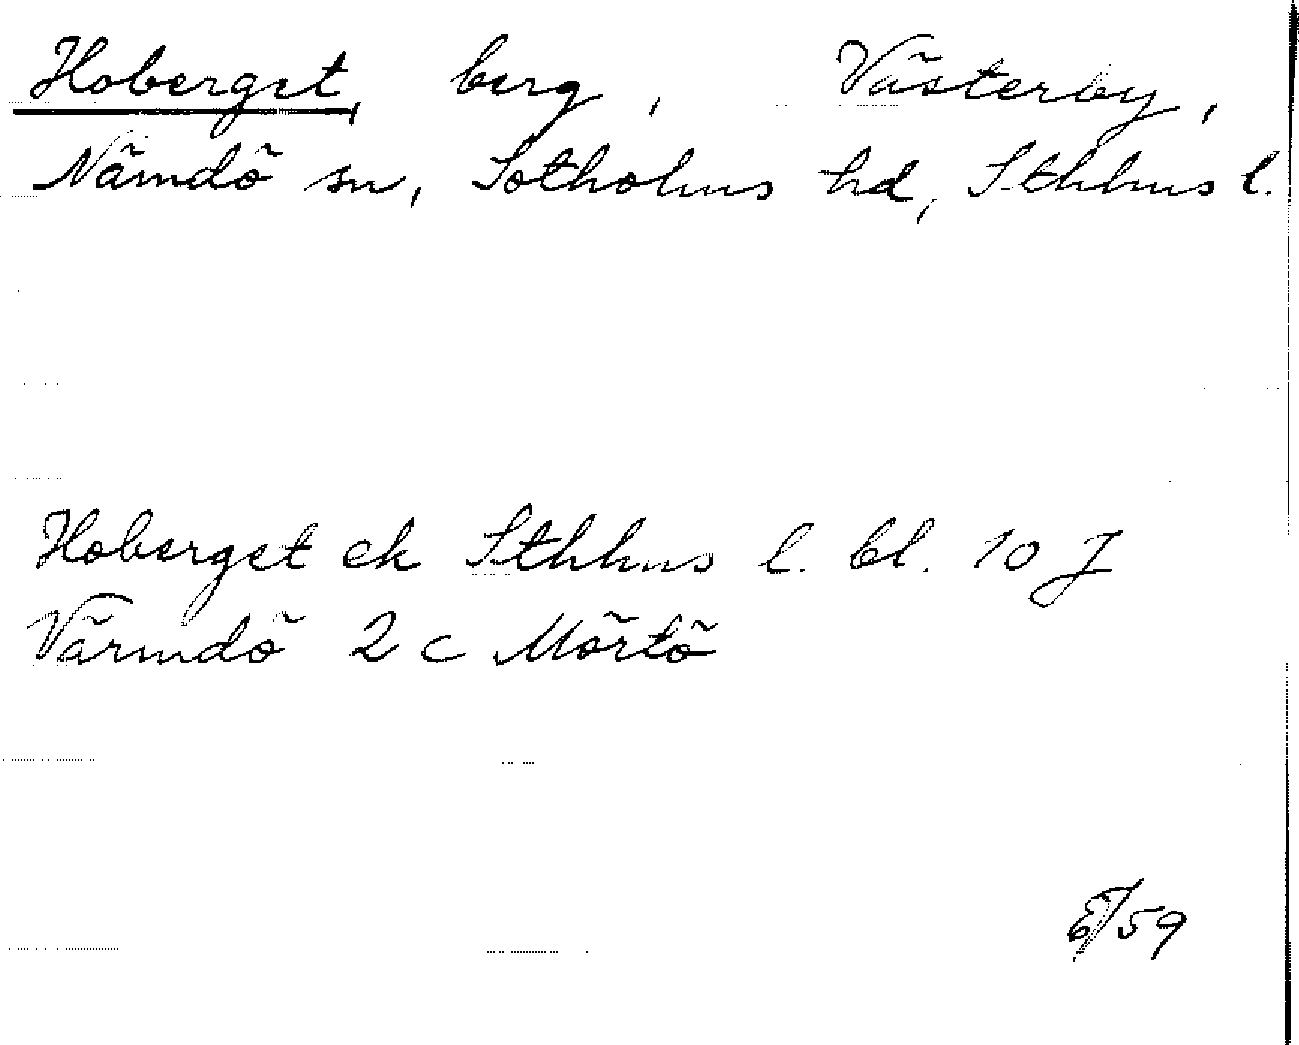 Hoberget, berg, Västerby,
Nämdö sn, Sotholms hd, Sthlms l.
Hoberget ek Sthlms l. bl. 10 J
Värmdö 2 c Mörtö
/59